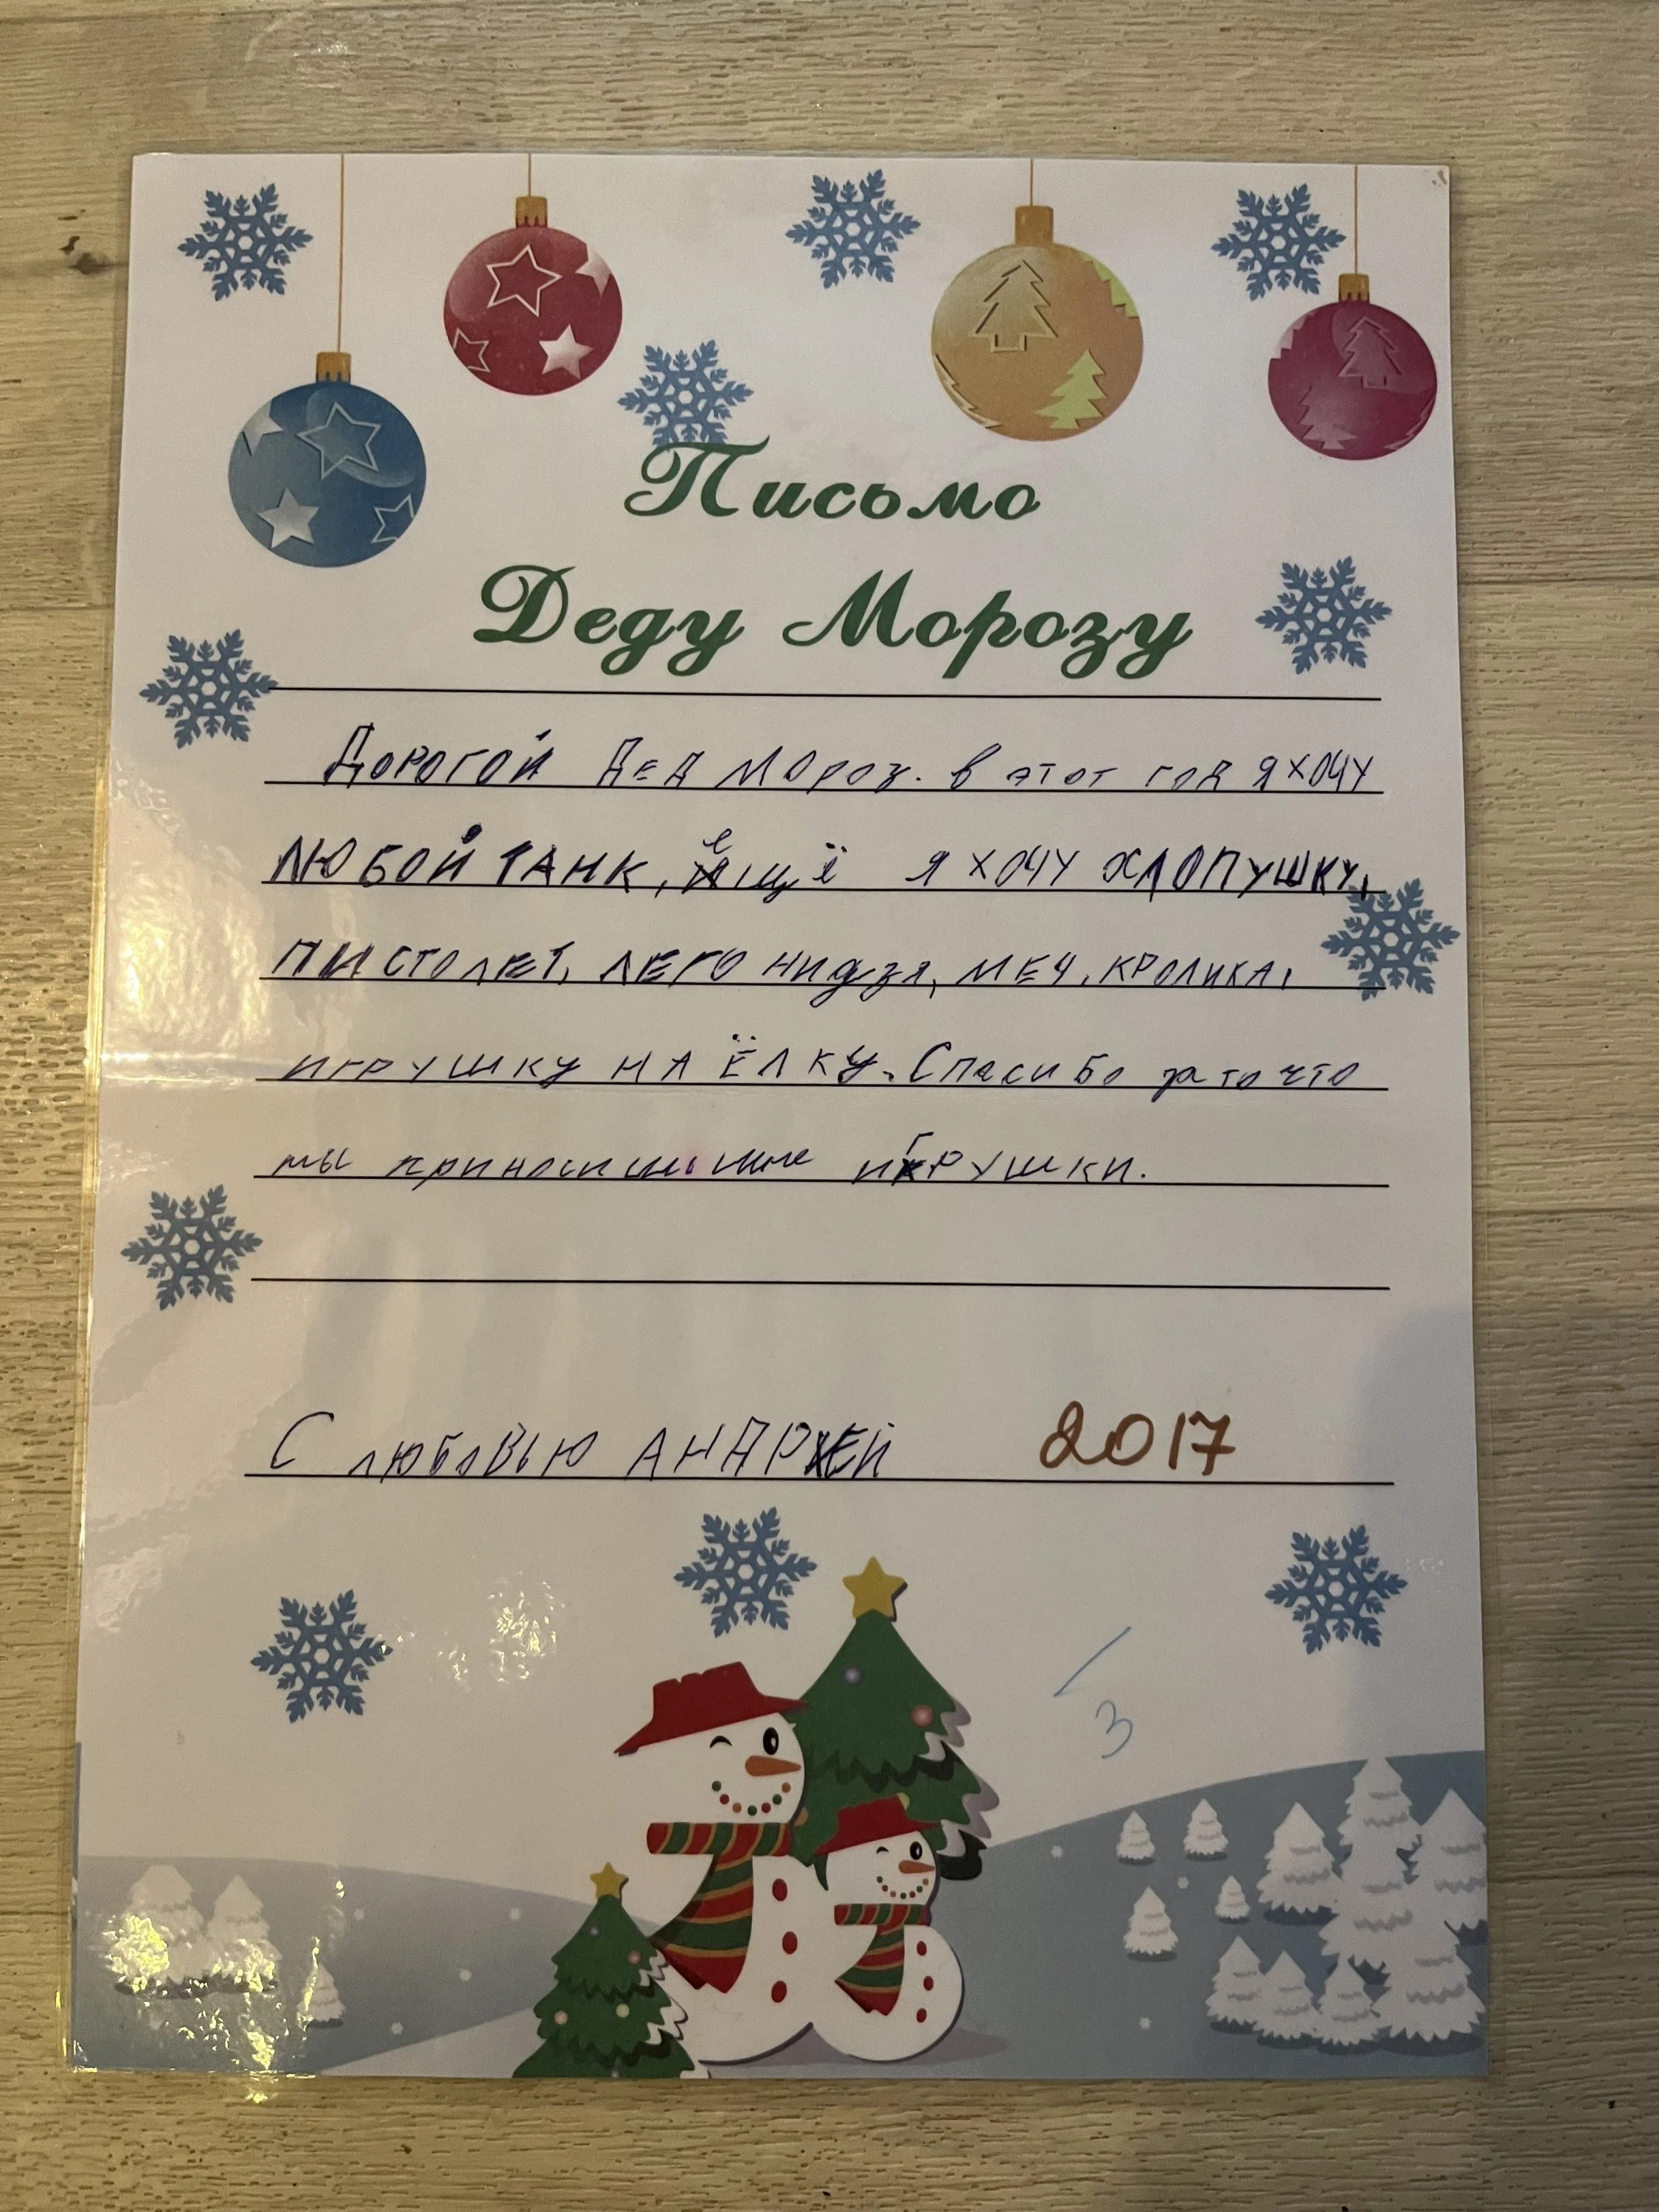 Письмо
Деду Морозу
ДОРОГОЙ ДЕД МОРОЗ. в этот год я хочу
ЛЮБОЙ ТАНК, ещё я хочу ХЛОПУШКУ,
ПИСТОЛЕТ, ЛЕГО нидзя, МЕЧ, КРОЛИКА,
ИГРУШКУ НА ЁЛКУ. Спасибо за то что
ты приносишь мне иГРУШКИ.
С любовью АНДРЕЙ 2017
3